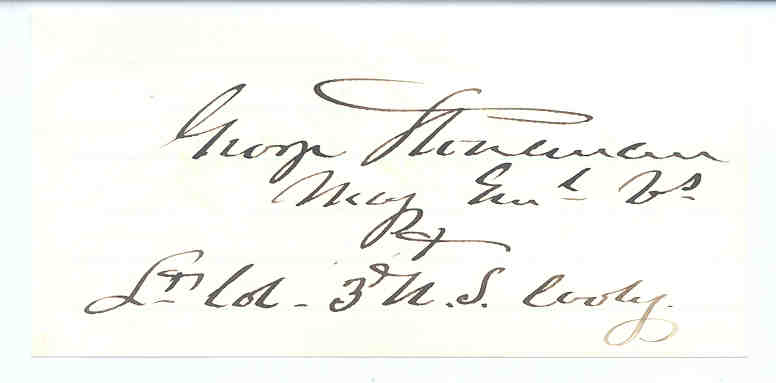 George Stoneman
Maj Genl Vs.
&
Lt Col - 3d U.S. Cavly.